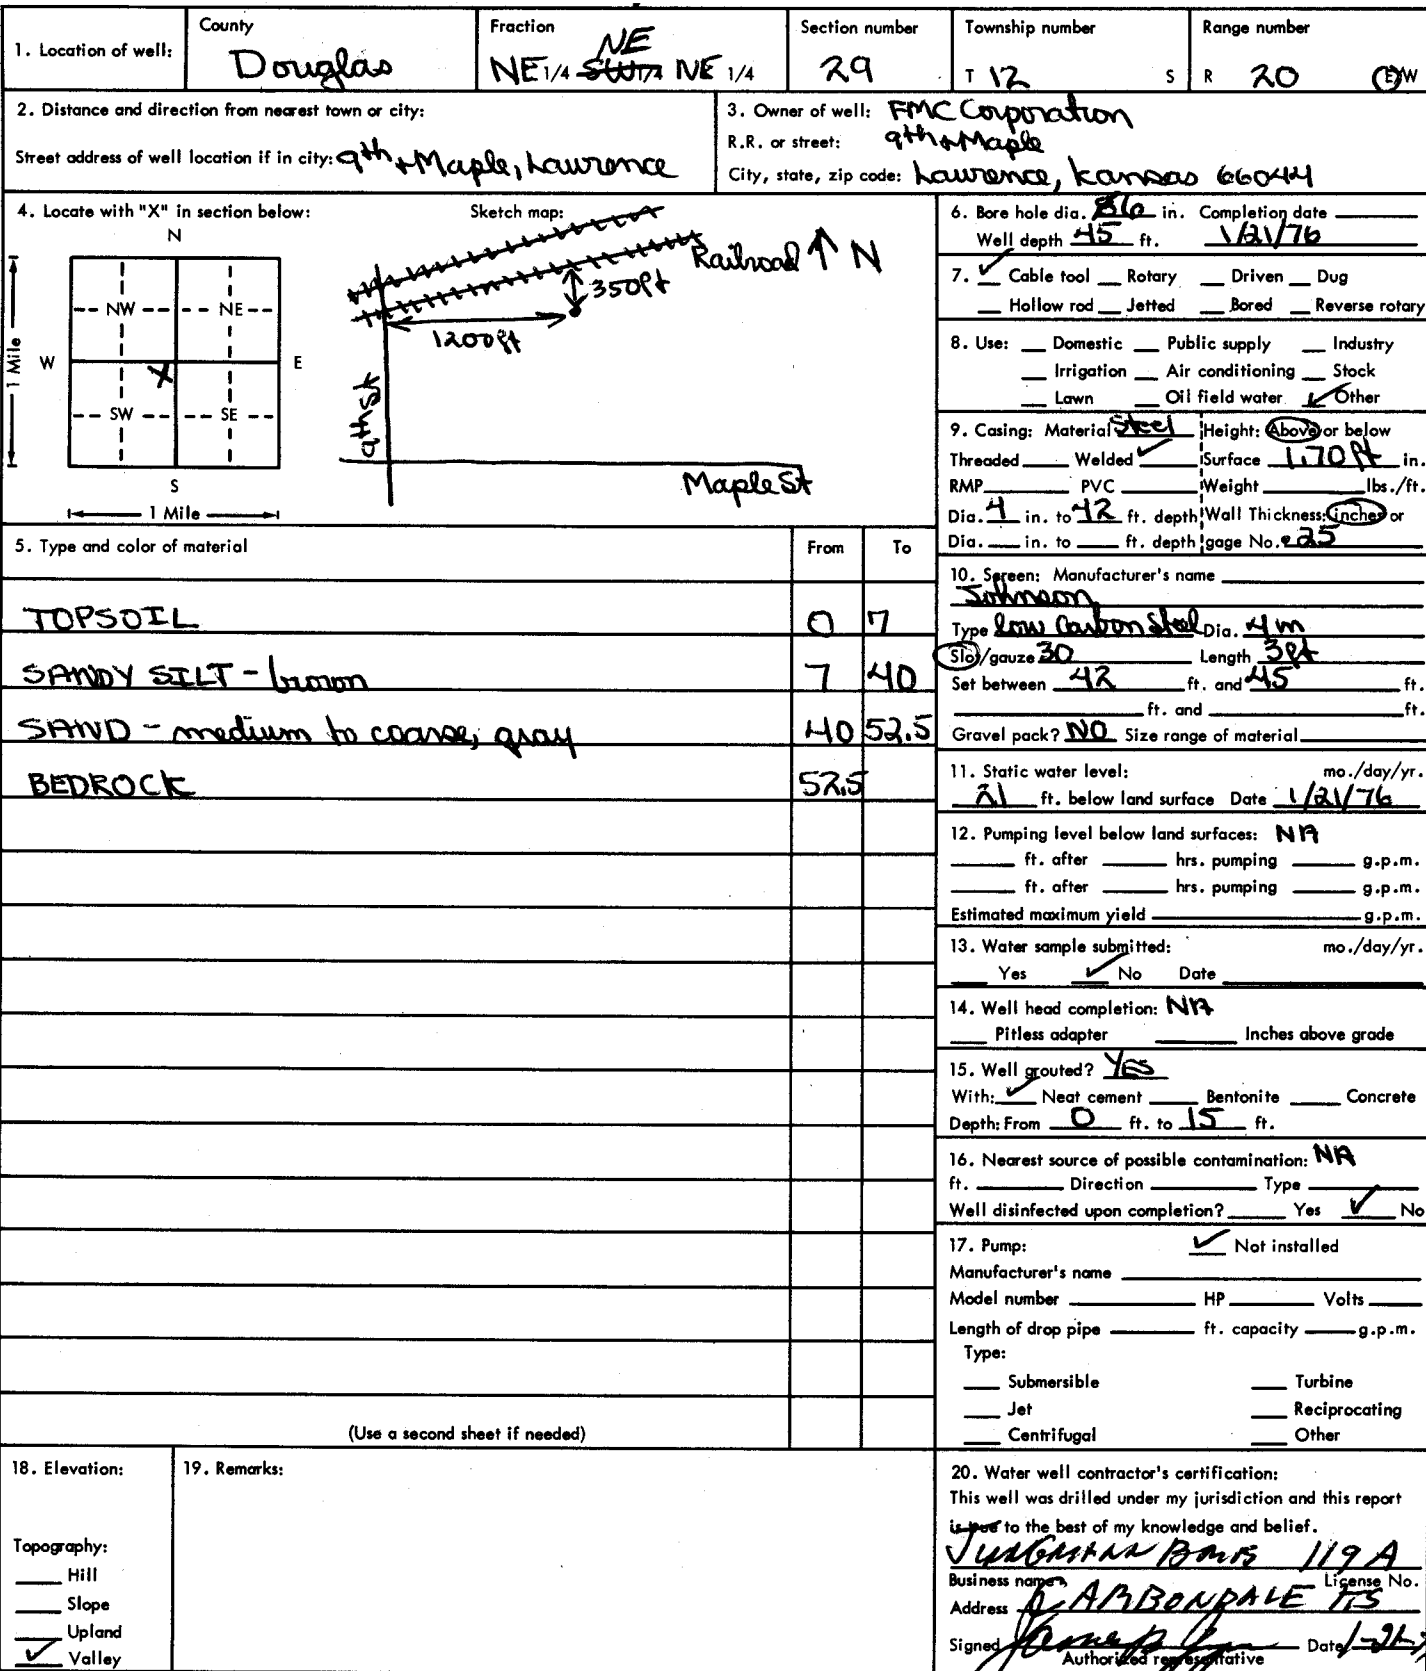 1. Location of well: County Douglas Fraction NE 1/4 SW 1/4 NE NE 1/4 Section number 29 Township number T 12 S Range number R 20 E/W
2. Distance and direction from nearest town or city:
Street address of well location if in city: 9th + Maple, Lawrence
3. Owner of well: FMC Corporation
R.R. or street: 9th + Maple
City, state, zip code: Lawrence, Kansas 66044
4. Locate with "X" in section below:
N
NW NE
W E
X
SW SE
S
1 Mile
1 Mile
Sketch map:
Railroad N
350ft
1200ft
9th St
Maple St
5. Type and color of material From To
TOPSOIL 0 7
SANDY SILT - brown 7 40
SAND - medium to coarse, gray 40 52.5
BEDROCK 52.5
(Use a second sheet if needed)
6. Bore hole dia. in. Completion date
Well depth 45 ft. 1/21/76
7. ✓ Cable tool Rotary Driven Dug
Hollow rod Jetted Bored Reverse rotary
8. Use: Domestic Public supply Industry
Irrigation Air conditioning Stock
Lawn Oil field water ✓ Other
9. Casing: Material Steel Height: Above or below
Threaded Welded ✓ Surface 1.70 ft in.
RMP PVC Weight lbs./ft.
Dia. 4 in. to 42 ft. depth Wall Thickness: inches or
Dia. in. to ft. depth gage No. .25
10. Screen: Manufacturer's name
Johnson
Type low Carbon Steel Dia. 4 in
Slot/gauze 30 Length 3ft
Set between 42 ft. and 45 ft.
ft. and ft.
Gravel pack? NO Size range of material
11. Static water level: mo./day/yr.
21 ft. below land surface Date 1/21/76
12. Pumping level below land surfaces: NA
ft. after hrs. pumping g.p.m.
ft. after hrs. pumping g.p.m.
Estimated maximum yield g.p.m.
13. Water sample submitted: mo./day/yr.
Yes ✓ No Date
14. Well head completion: NA
Pitless adapter Inches above grade
15. Well grouted? YES
With: ✓ Neat cement Bentonite Concrete
Depth: From 0 ft. to 15 ft.
16. Nearest source of possible contamination: NA
ft. Direction Type
Well disinfected upon completion? Yes ✓ No
17. Pump: ✓ Not installed
Manufacturer's name
Model number HP Volts
Length of drop pipe ft. capacity g.p.m.
Type:
Submersible Turbine
Jet Reciprocating
Centrifugal Other
18. Elevation:
Topography:
Hill
Slope
Upland
✓ Valley
19. Remarks:
20. Water well contractor's certification:
This well was drilled under my jurisdiction and this report
is true to the best of my knowledge and belief.
JUNGMANN BROS 119 A
Business name License No.
Address CARBONDALE KS
Signed Date 1-21-
Authorized representative